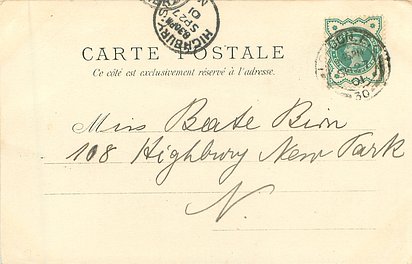 HIGHBURY
8.30PM
SP 27
01
N
CARTE POSTALE
Ce côté est exclusivement réservé à l'adresse.
01
30
Miss Beate Bion
108 Highbury New Park
N.